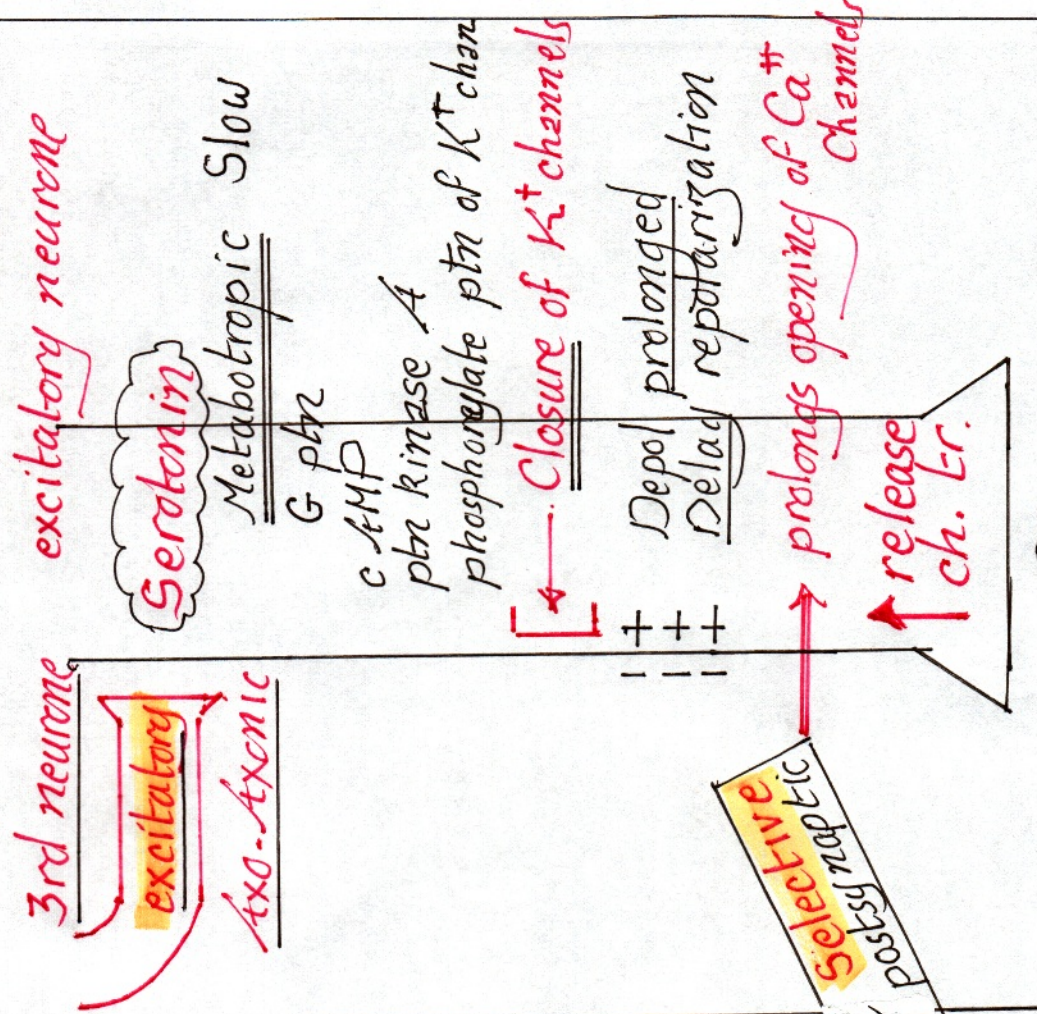 3rd neurone
excitatory
Axo-Axonic
excitatory neurone
Serotonin
Metabotropic Slow
G ptn
c AMP
ptn kinase A
phosphorylate ptn of K+ chan
Closure of K+ channels
Depol prolonged
Delad repolarization
prolongs opening of Ca++
channels
release
ch. tr.
Selective
postsynaptic